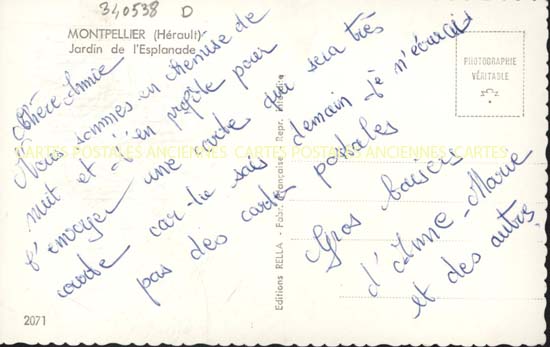 340538 D
MONTPELLIER (Hérault)
Jardin de l'Esplanade
Chère Annie
Nous sommes en chemise de
nuit et j'en profite pour
t'envoyer une carte qui sera très
courte car tu sais demain je n'écrirais
pas des cartes postales
Gros baisers
d'Anne-Marie
et des autres
PHOTOGRAPHIE
VÉRITABLE
Editions RELLA - Fabr. Française - Repr. Interdite
CARTES POSTALES ANCIENNES CARTES POSTALES ANCIENNES CARTES
2071